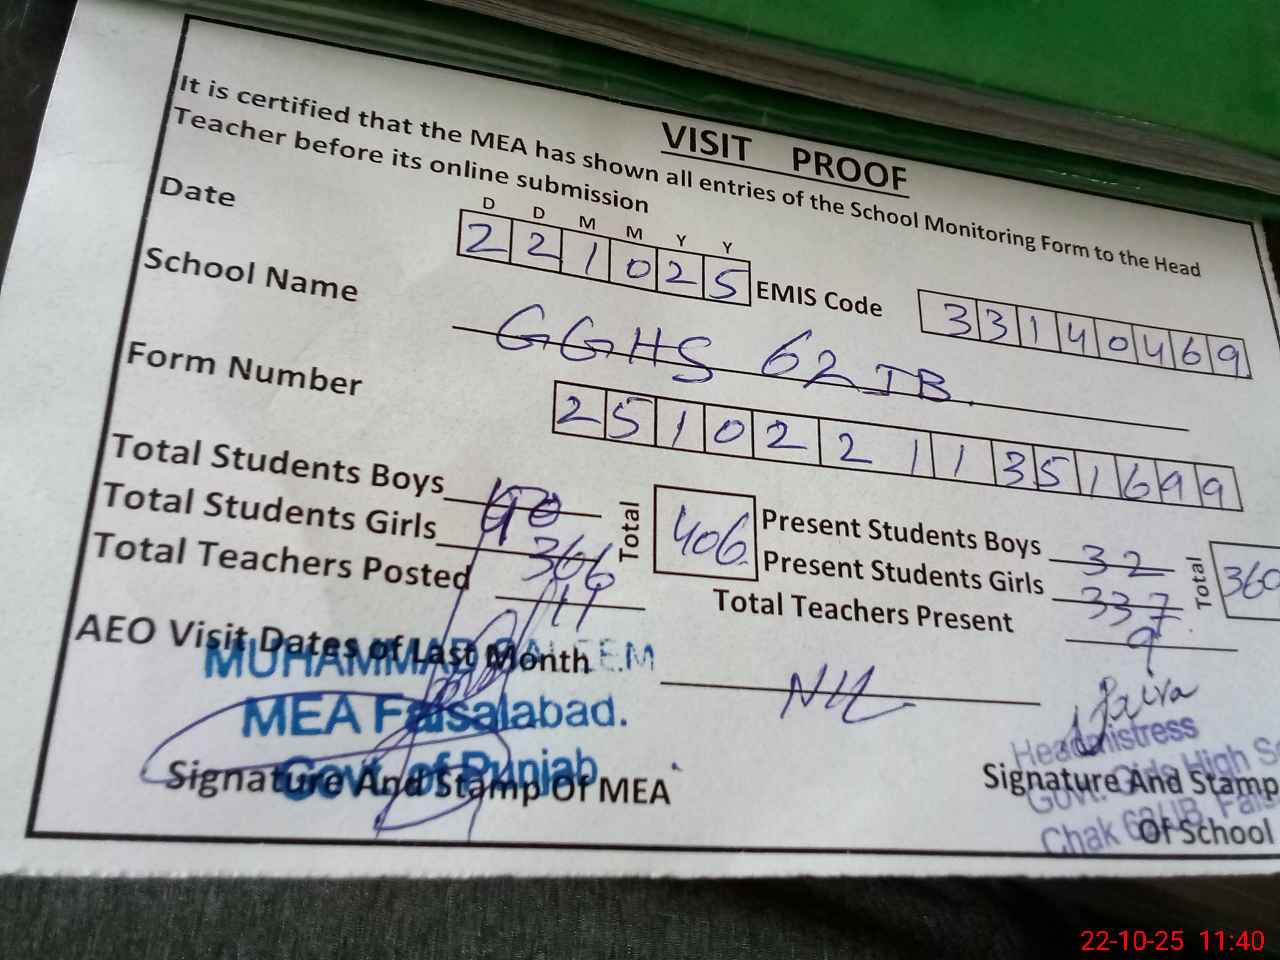 VISIT PROOF
It is certified that the MEA has shown all entries of the School Monitoring Form to the Head
Teacher before its online submission
D D M M Y Y
Date 2 2 1 0 2 5 EMIS Code 3 3 1 4 0 4 6 9
School Name GGHS 62 JB.
Form Number 2 5 1 0 2 2 1 1 3 5 1 6 9 9
Total Students Boys 40 Total 406 Present Students Boys 32 Total 360
Total Students Girls 366 Present Students Girls 337
Total Teachers Posted 11 Total Teachers Present 9
AEO Visit Dates of Last Month Nil
MUHAMMAD
MEA Faisalabad.
Govt. of Punjab
Signature And Stamp Of MEA
Headmistress
Govt. Girls High
Chak 62/JB,
Signature And Stamp
Of School
22-10-25 11:40